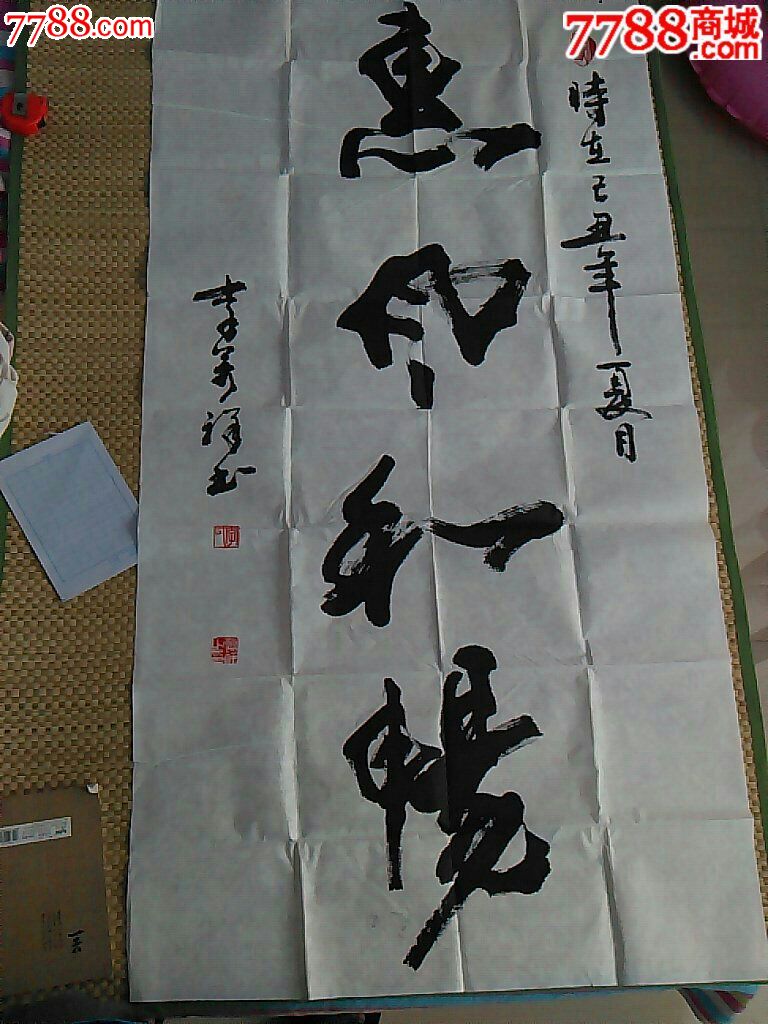 7788.com
7788商城
.com
時在己丑年夏月
惠风和暢
李万祥书